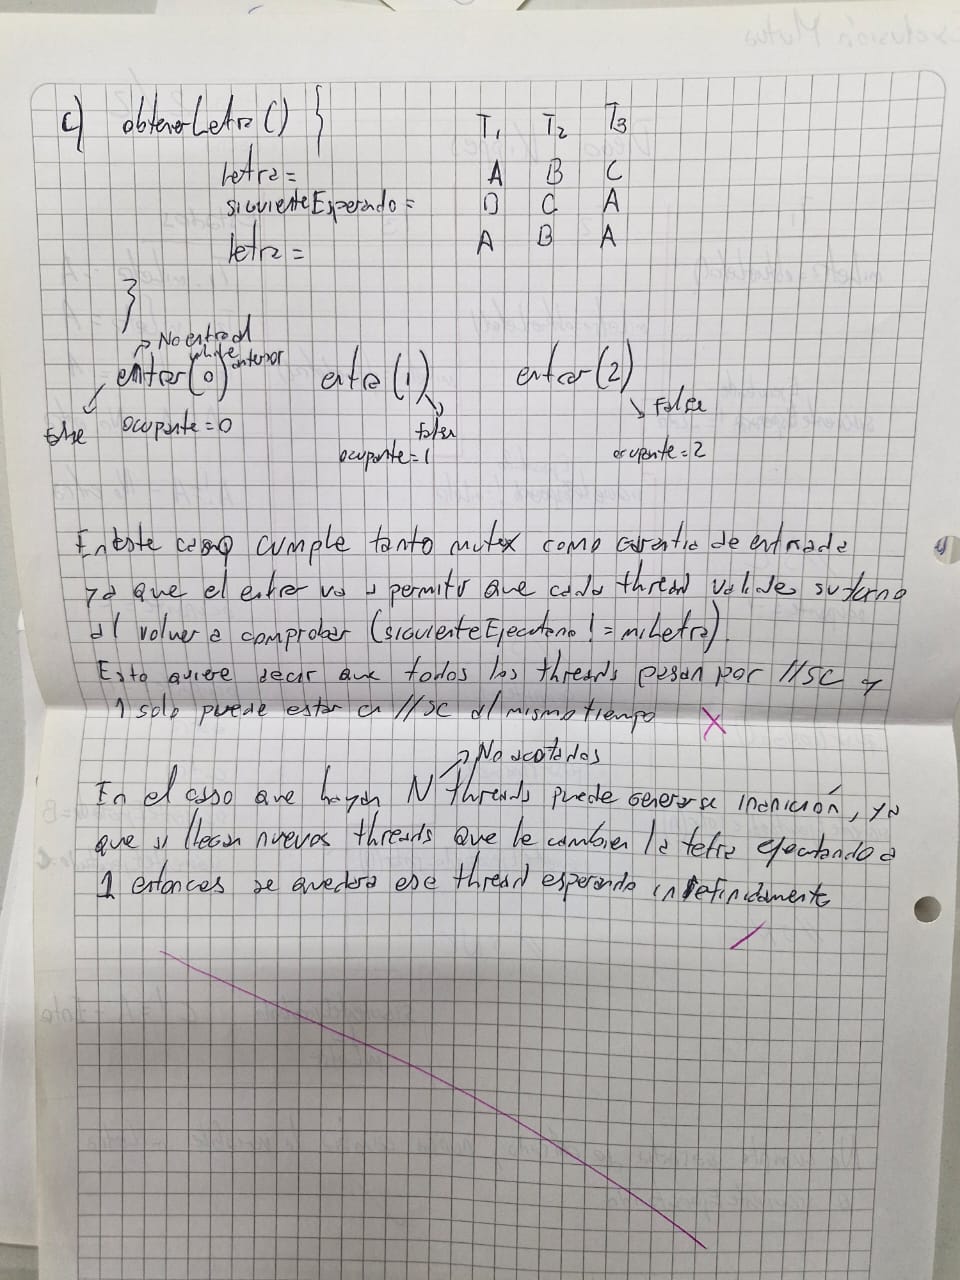 c) obtenerLetra() {
T1 T2 T3
letra = A B C
siguienteEsperado = B C A
letra = A B A
}
No entra al
while
anterior
entrar(0) entra(1) entrar(2)
false false
ocupante = 0
ocupante = 1 ocupante = 2
En este caso cumple tanto mutex como garantia de entrada
ya que el entrar va a permitir que cada thread valide su turno
al volver a comprobar (siguienteEjecutando != miLetra)
Esto quiere decir que todos los threads pasan por //SC y
1 solo puede estar en //SC al mismo tiempo
No acotados
En el caso que hayan N threads puede generarse inanición, ya
que si llegan nuevos threads que le cambien la letra ejecutando a
1 entonces se quedara ese thread esperando indefinidamente